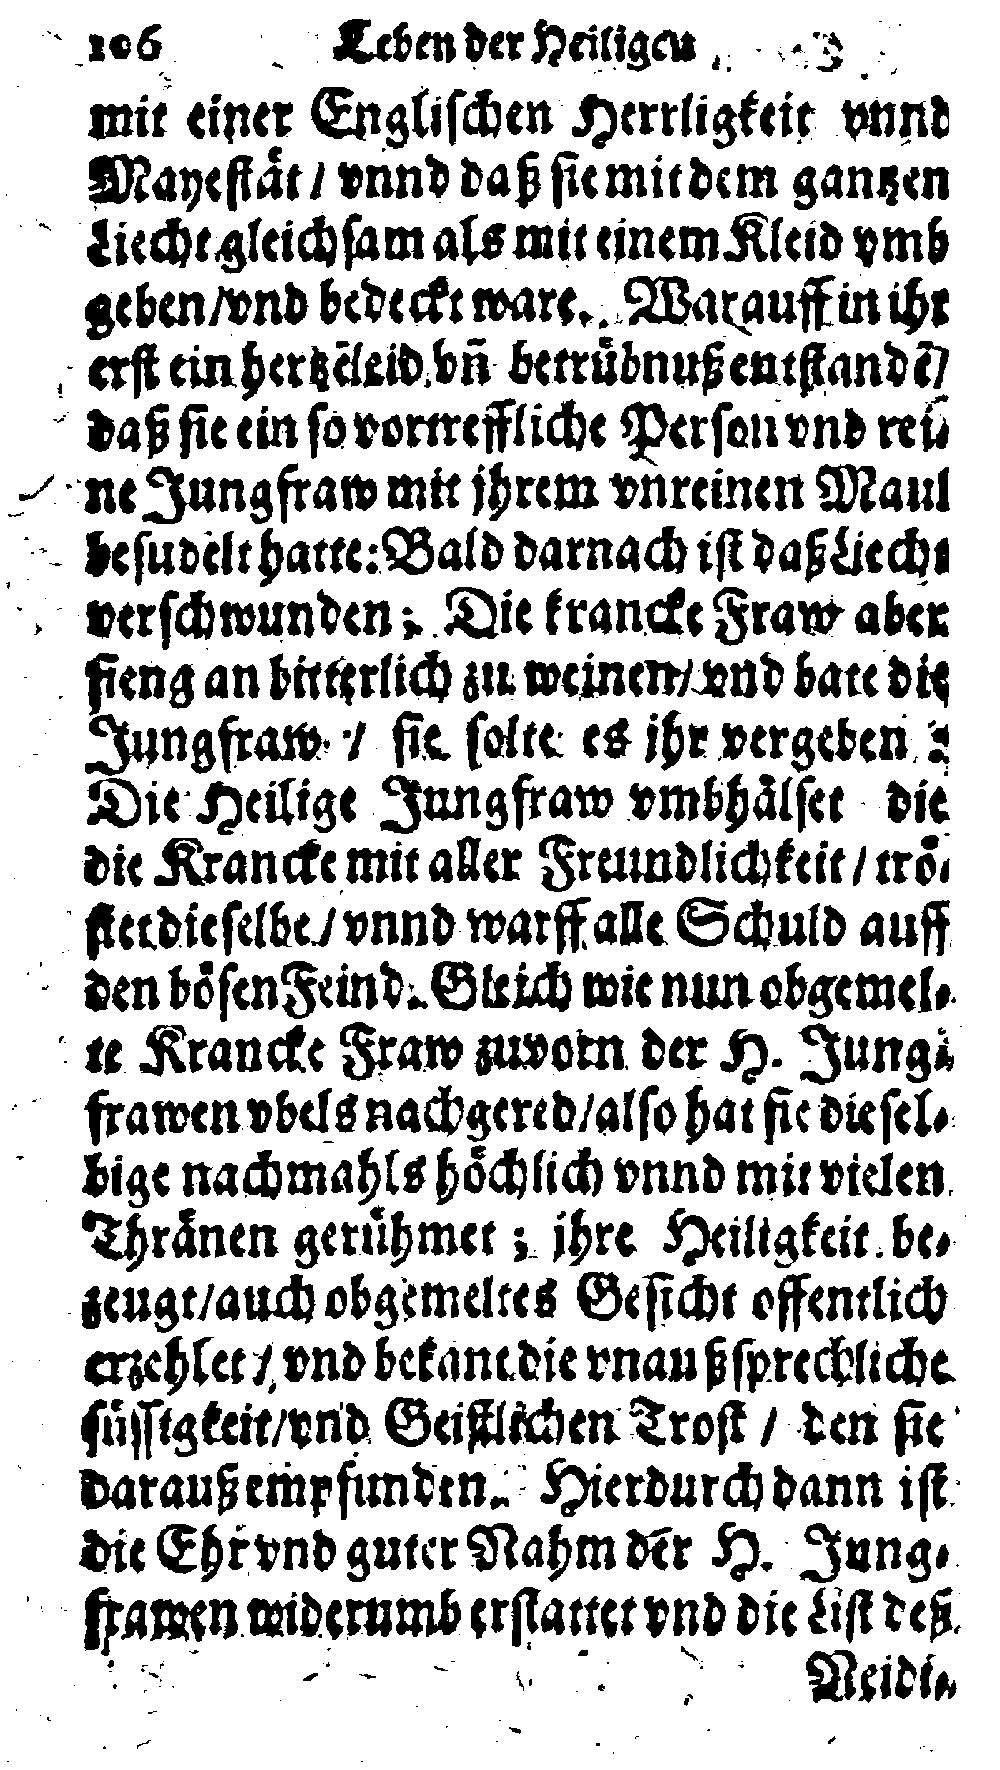 106 Leben der Heiligen
mit einer Englischen Herrligkeit vnnd
Mayestät / vnnd daß sie mit dem gantzen
Liecht gleichsam als mit einem Kleid vmb
geben / vnd bedeckt ware. Warauff in ihr
erst ein hertzēleid vñ betrübnuß entstandē /
daß sie ein so vortreffliche Person vnd rei-
ne Jungfraw mit jhrem vnreinen Maul
besudelt hatte: Bald darnach ist daß Liecht
verschwunden; Die krancke Fraw aber
fieng an bitterlich zu weinen / vnd bate die
Jungfraw / sie solte es jhr vergeben:
Die Heilige Jungfraw vmbhälset die
die Krancke mit aller Freundlichkeit / trö-
stet dieselbe / vnnd warff alle Schuld auff
den bösen Feind. Gleich wie nun obgemel-
te Krancke Fraw zuvorn der H. Jung-
frawen vbels nachgered / also hat sie diesel-
bige nachmahls höchlich vnnd mit vielen
Thränen gerühmet; jhre Heiligkeit be-
zeugt / auch obgemeltes Gesicht offentlich
erzehlet / vnd bekant die vnaußsprechliche
süssigkeit / vnd Geistlichen Trost / den sie
darauß empfunden. Hierdurch dann ist
die Ehr vnd guter Nahm der H. Jung-
frawen widerumb erstattet vnd die List deß
Neidi-